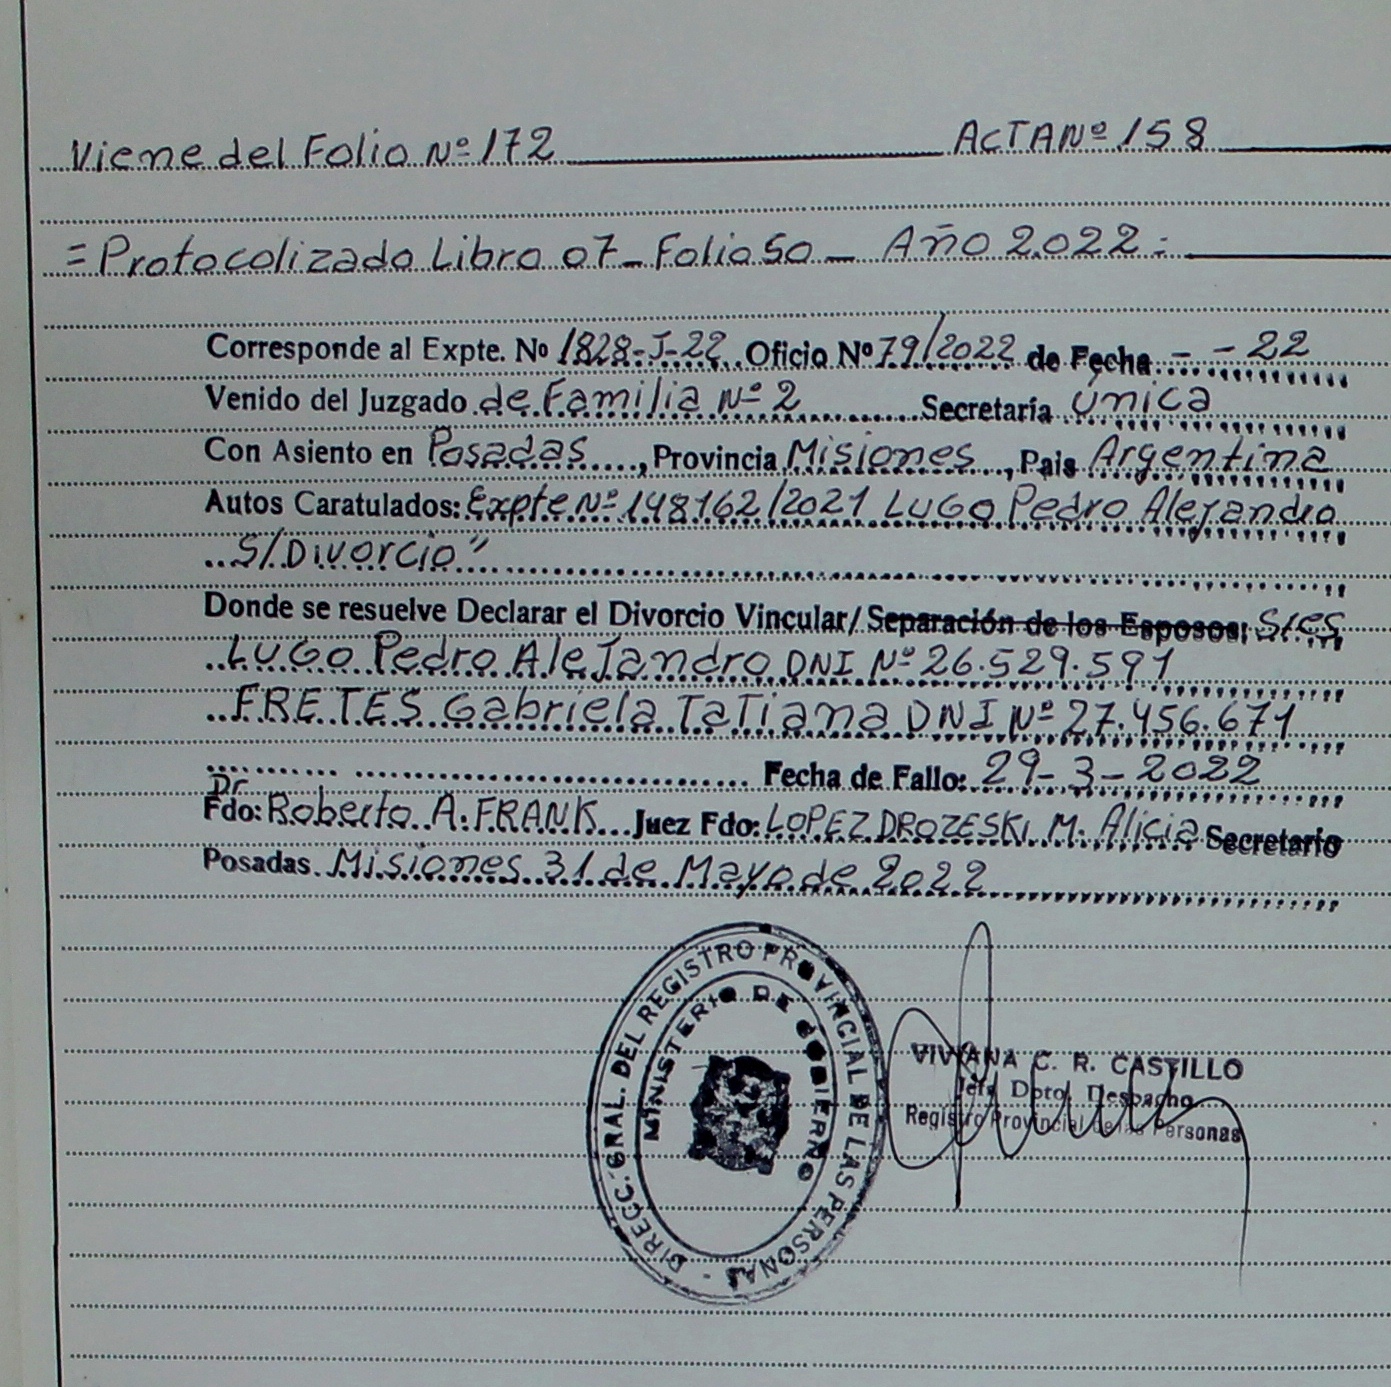 Viene del Folio Nº 172 ACTA Nº 158
= Protocolizado Libro 07_ Folio 50 _ Año 2.022 =
Corresponde al Expte. Nº 1828-J-22 Oficio Nº 79/2022 de Fecha - - 22
Venido del Juzgado de Familia Nº 2 Secretaría Única
Con Asiento en Posadas, Provincia Misiones, Pais Argentina
Autos Caratulados: Expte Nº 148162/2021 LUGO Pedro Alejandro
S/Divorcio"
Donde se resuelve Declarar el Divorcio Vincular/ Separación de los Esposos; S/es
LUGO Pedro Alejandro DNI Nº 26.529.591
FRETES Gabriela Tatiana DNI Nº 27.456.671
Fecha de Fallo: 29-3-2022
Dr
Fdo: Roberto A. FRANK Juez Fdo: LOPEZ DROZESKI M. Alicia Secretario
Posadas. Misiones 31 de Mayo de 2022
DIRECC. GRAL. DEL REGISTRO PROVINCIAL DE LAS PERSONAS -
MINISTERIO DE GOBIERNO
VIVIANA C. R. CASTILLO
Jefa Dpto. Despacho
Registro Provincial de las Personas